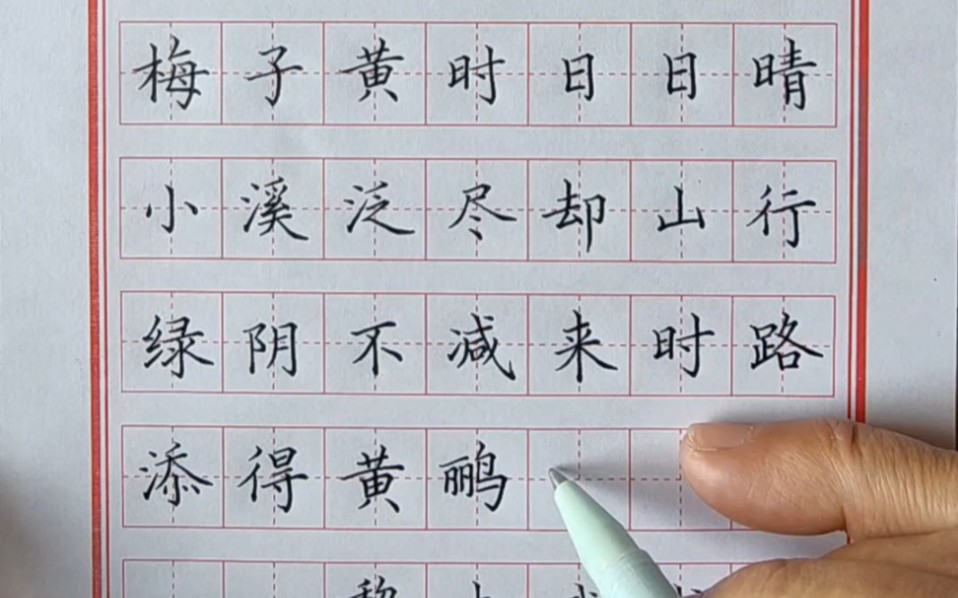 梅子黄时日日晴
小溪泛尽却山行
绿阴不减来时路
添得黄鹂